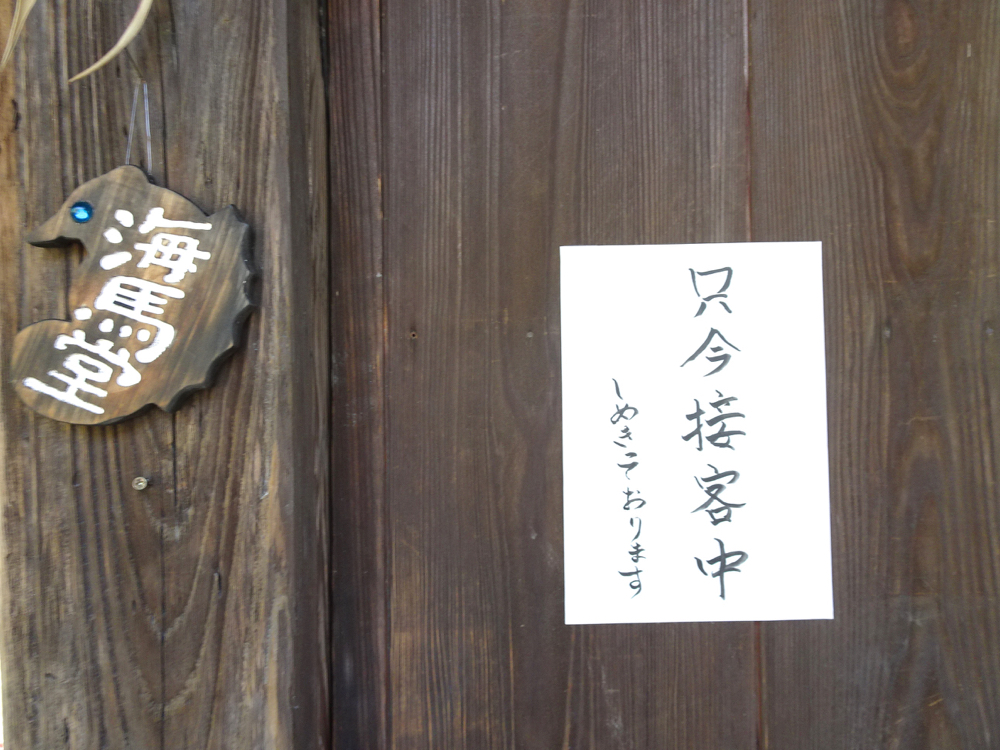 海馬堂
只今接客中
しめきっております